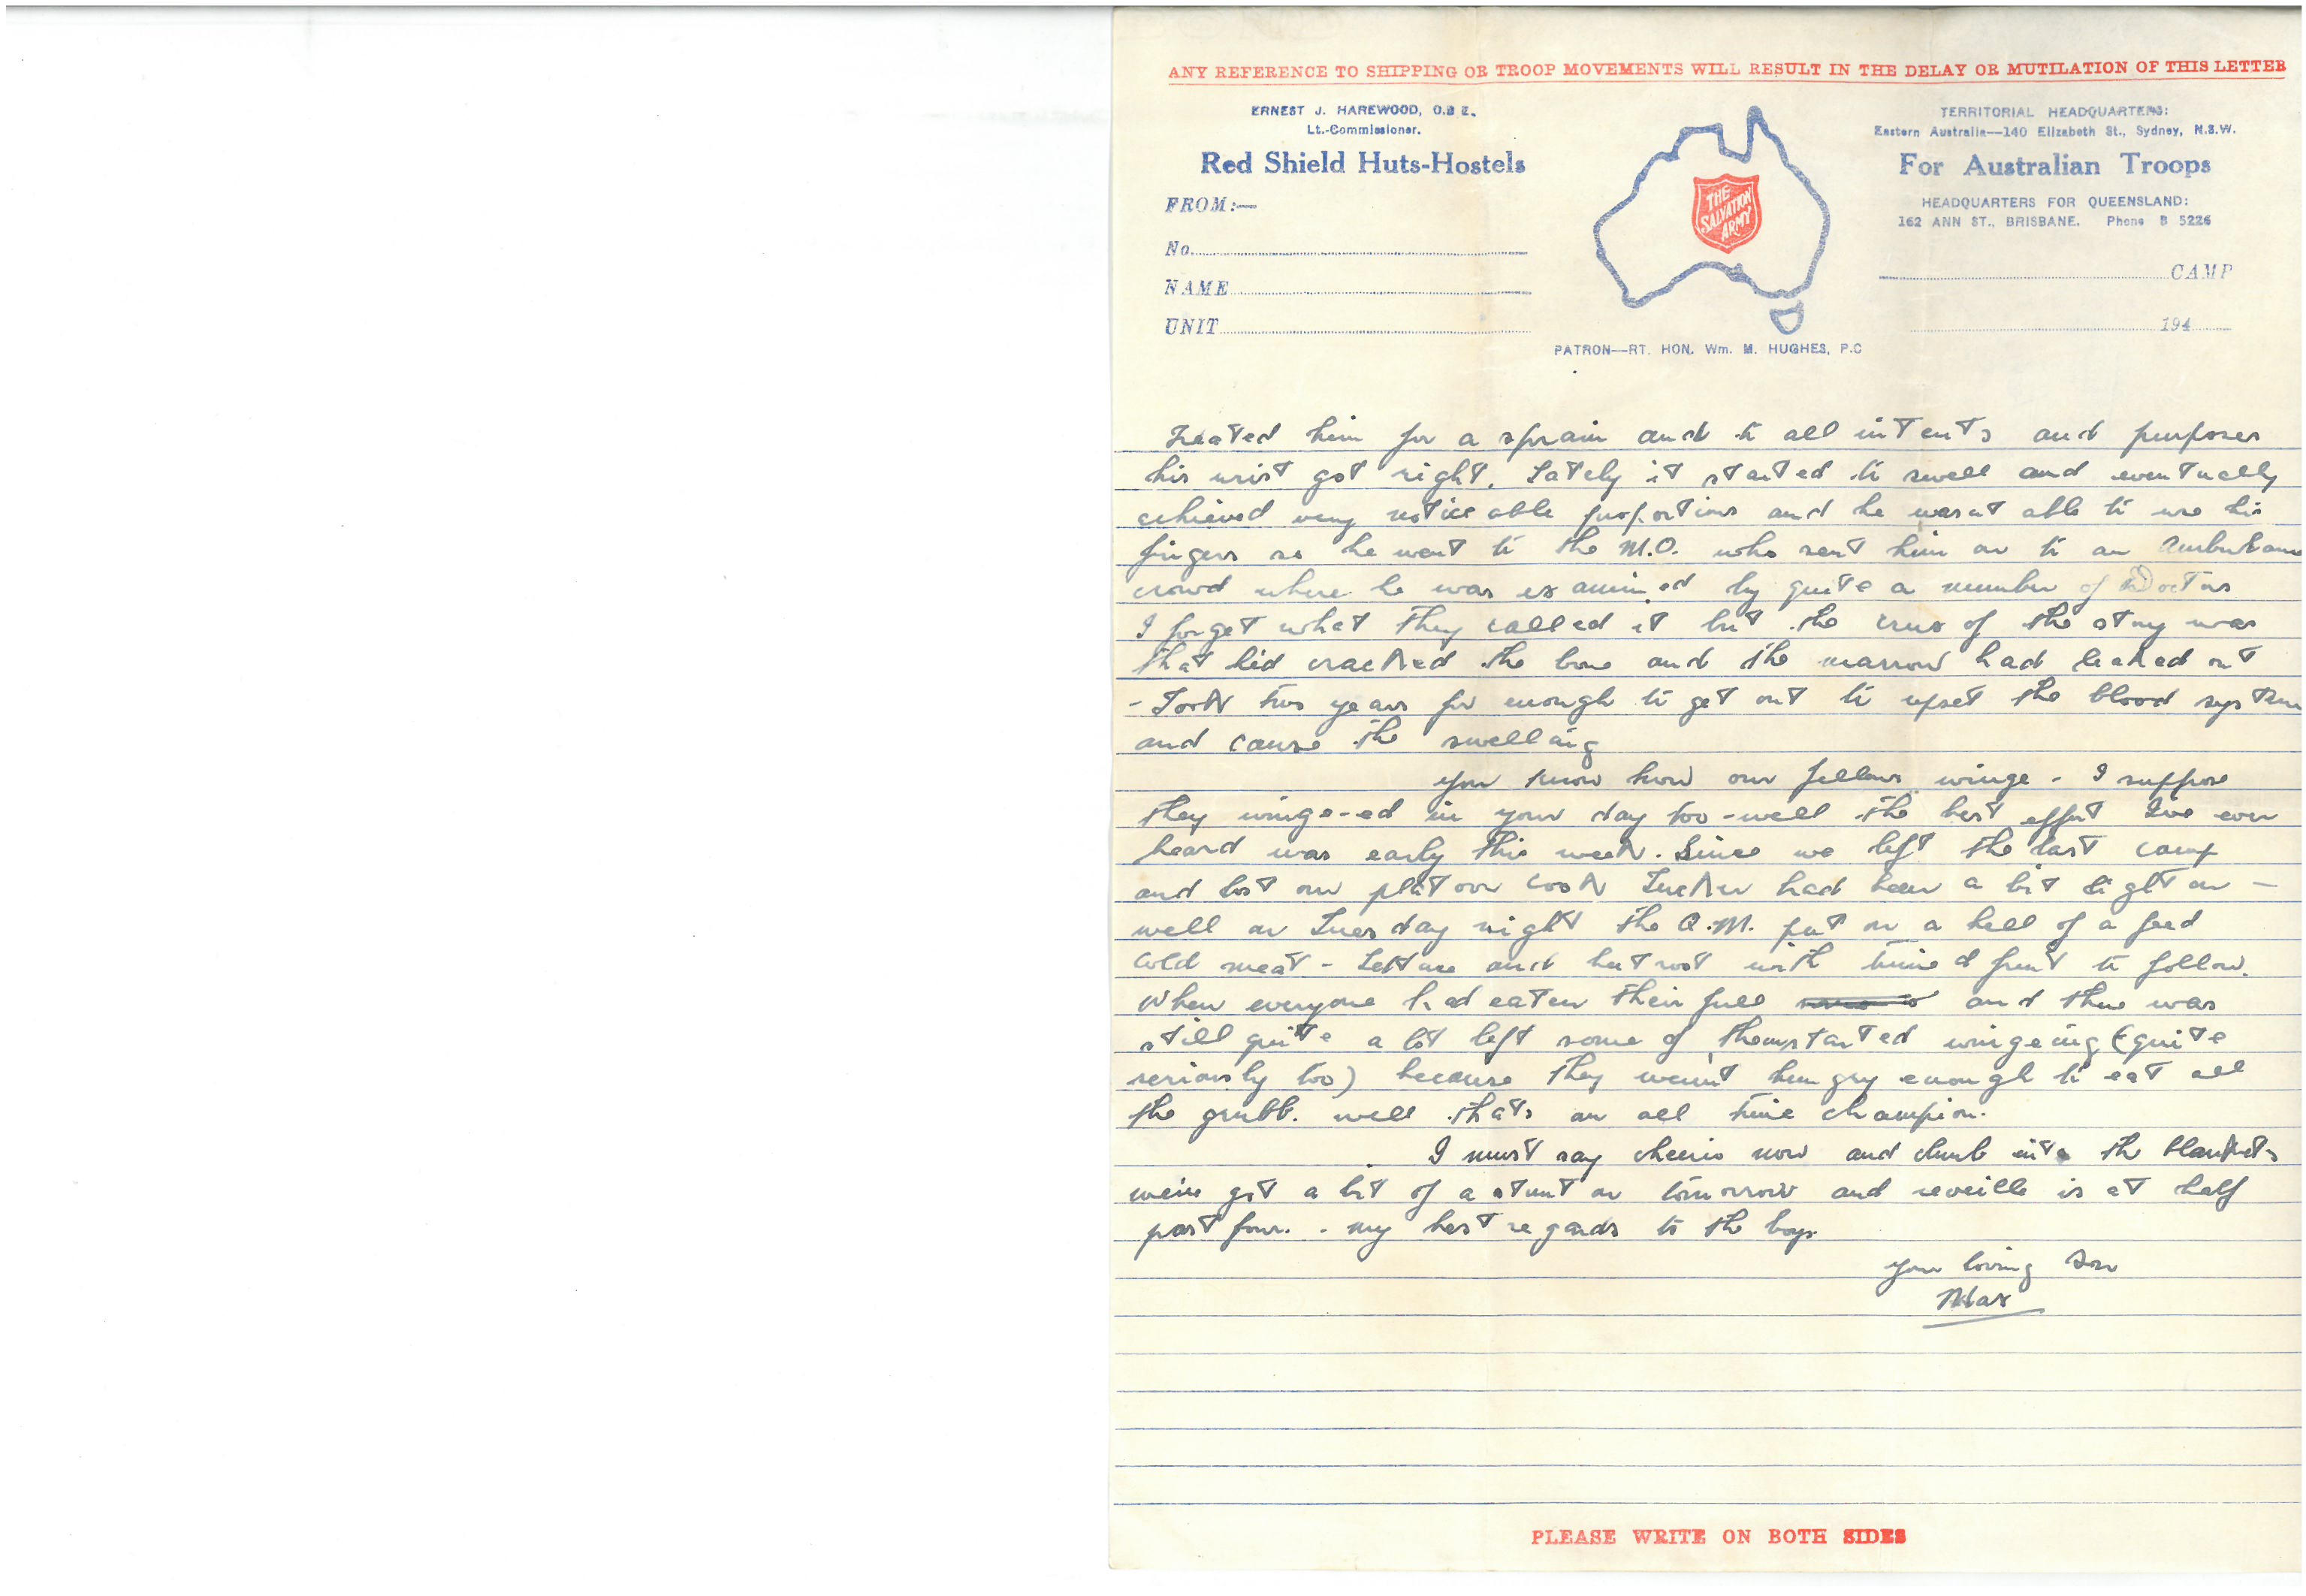 ANY REFERENCE TO SHIPPING OR TROOP MOVEMENTS WILL RESULT IN THE DELAY OR MUTILATION OF THIS LETTER
ERNEST J. HAREWOOD, O.B.E.
Lt.-Commissioner.
Red Shield Huts-Hostels
FROM:—
No.
NAME
UNIT
THE SALVATION ARMY
PATRON—RT. HON. Wm. M. HUGHES, P.C
TERRITORIAL HEADQUARTERS:
Eastern Australia—140 Elizabeth St., Sydney, N.S.W.
For Australian Troops
HEADQUARTERS FOR QUEENSLAND:
162 ANN ST., BRISBANE. Phone B 5226
CAMP
194
treated him for a sprain and to all intents and purposes
his wrist got right. Lately it started to swell and eventually
achieved very noticeable proportions and he wasnt able to use his
fingers so he went to the M.O. who sent him on to an Ambulance
crowd where he was examined by quite a number of Doctors
I forget what they called it but the crux of the story was
that he'd cracked the bone and the marrow had leaked out
- Took two years for enough to get out to upset the blood system
and cause the swelling
You know how our fellows winge - I suppose
they winge-ed in your day too - well the best effort I've ever
heard was early this week. Since we left the last camp
and lost our platoon cook Tucker had been a bit light on -
well on Tuesday night the Q.M. put on a hell of a feed
cold meat - lettuce and beetroot with tinned fruit to follow.
When everyone had eaten their full and there was
still quite a lot left some of them started wingeing (quite
seriously too) because they weren't hungry enough to eat all
the grubb. well thats an all time champion.
I must say cheerio now and climb into the blankets
we've got a bit of a stunt on tomorrow and reveille is at half
past four. - my best regards to the boys.
your loving Son
Max
PLEASE WRITE ON BOTH SIDES